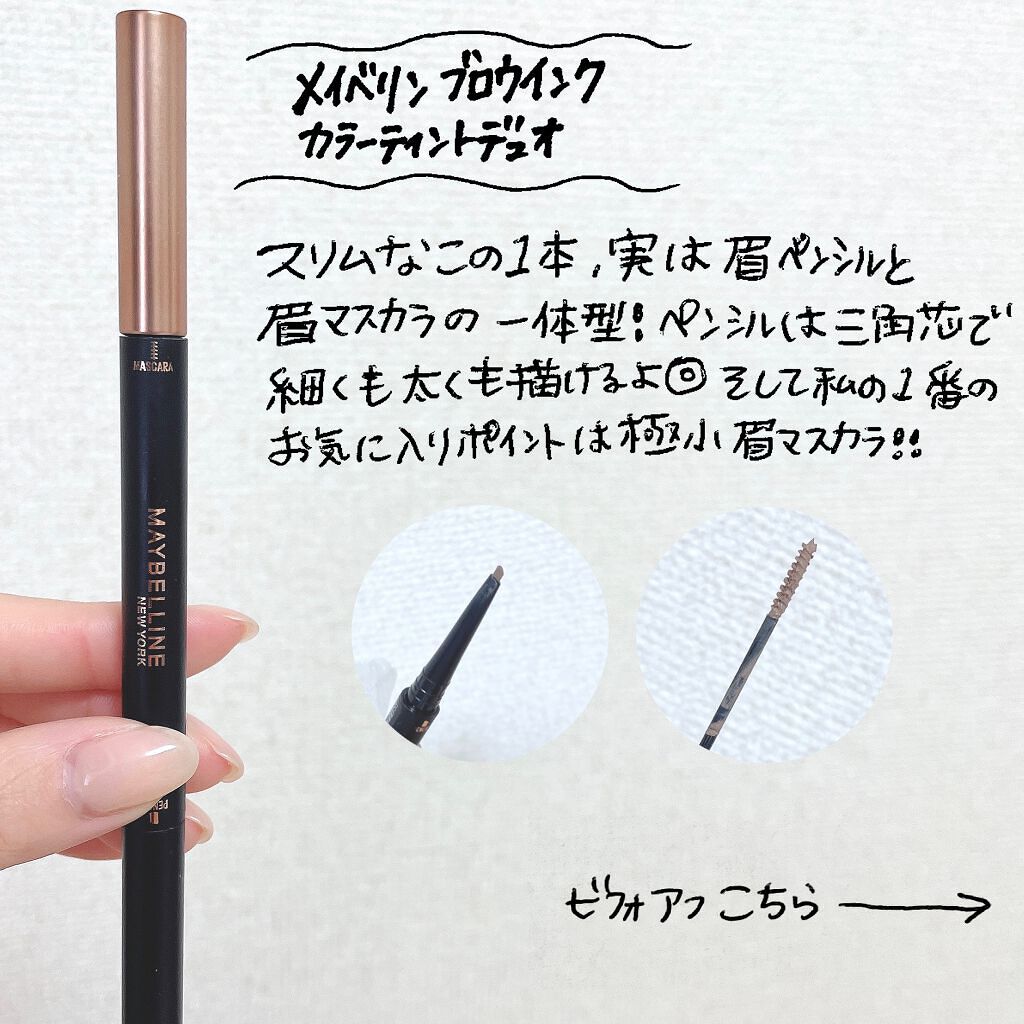 メイベリン ブロウインク
カラーティントデュオ
スリムなこの1本、実は眉ペンシルと
眉マスカラの一体型!ペンシルは三角芯で
細くも太くも描けるよ◎そして私の1番の
お気に入りポイントは極小眉マスカラ!!
MASCARA
MAYBELLINE
NEW YORK
ビフォアフこちら →